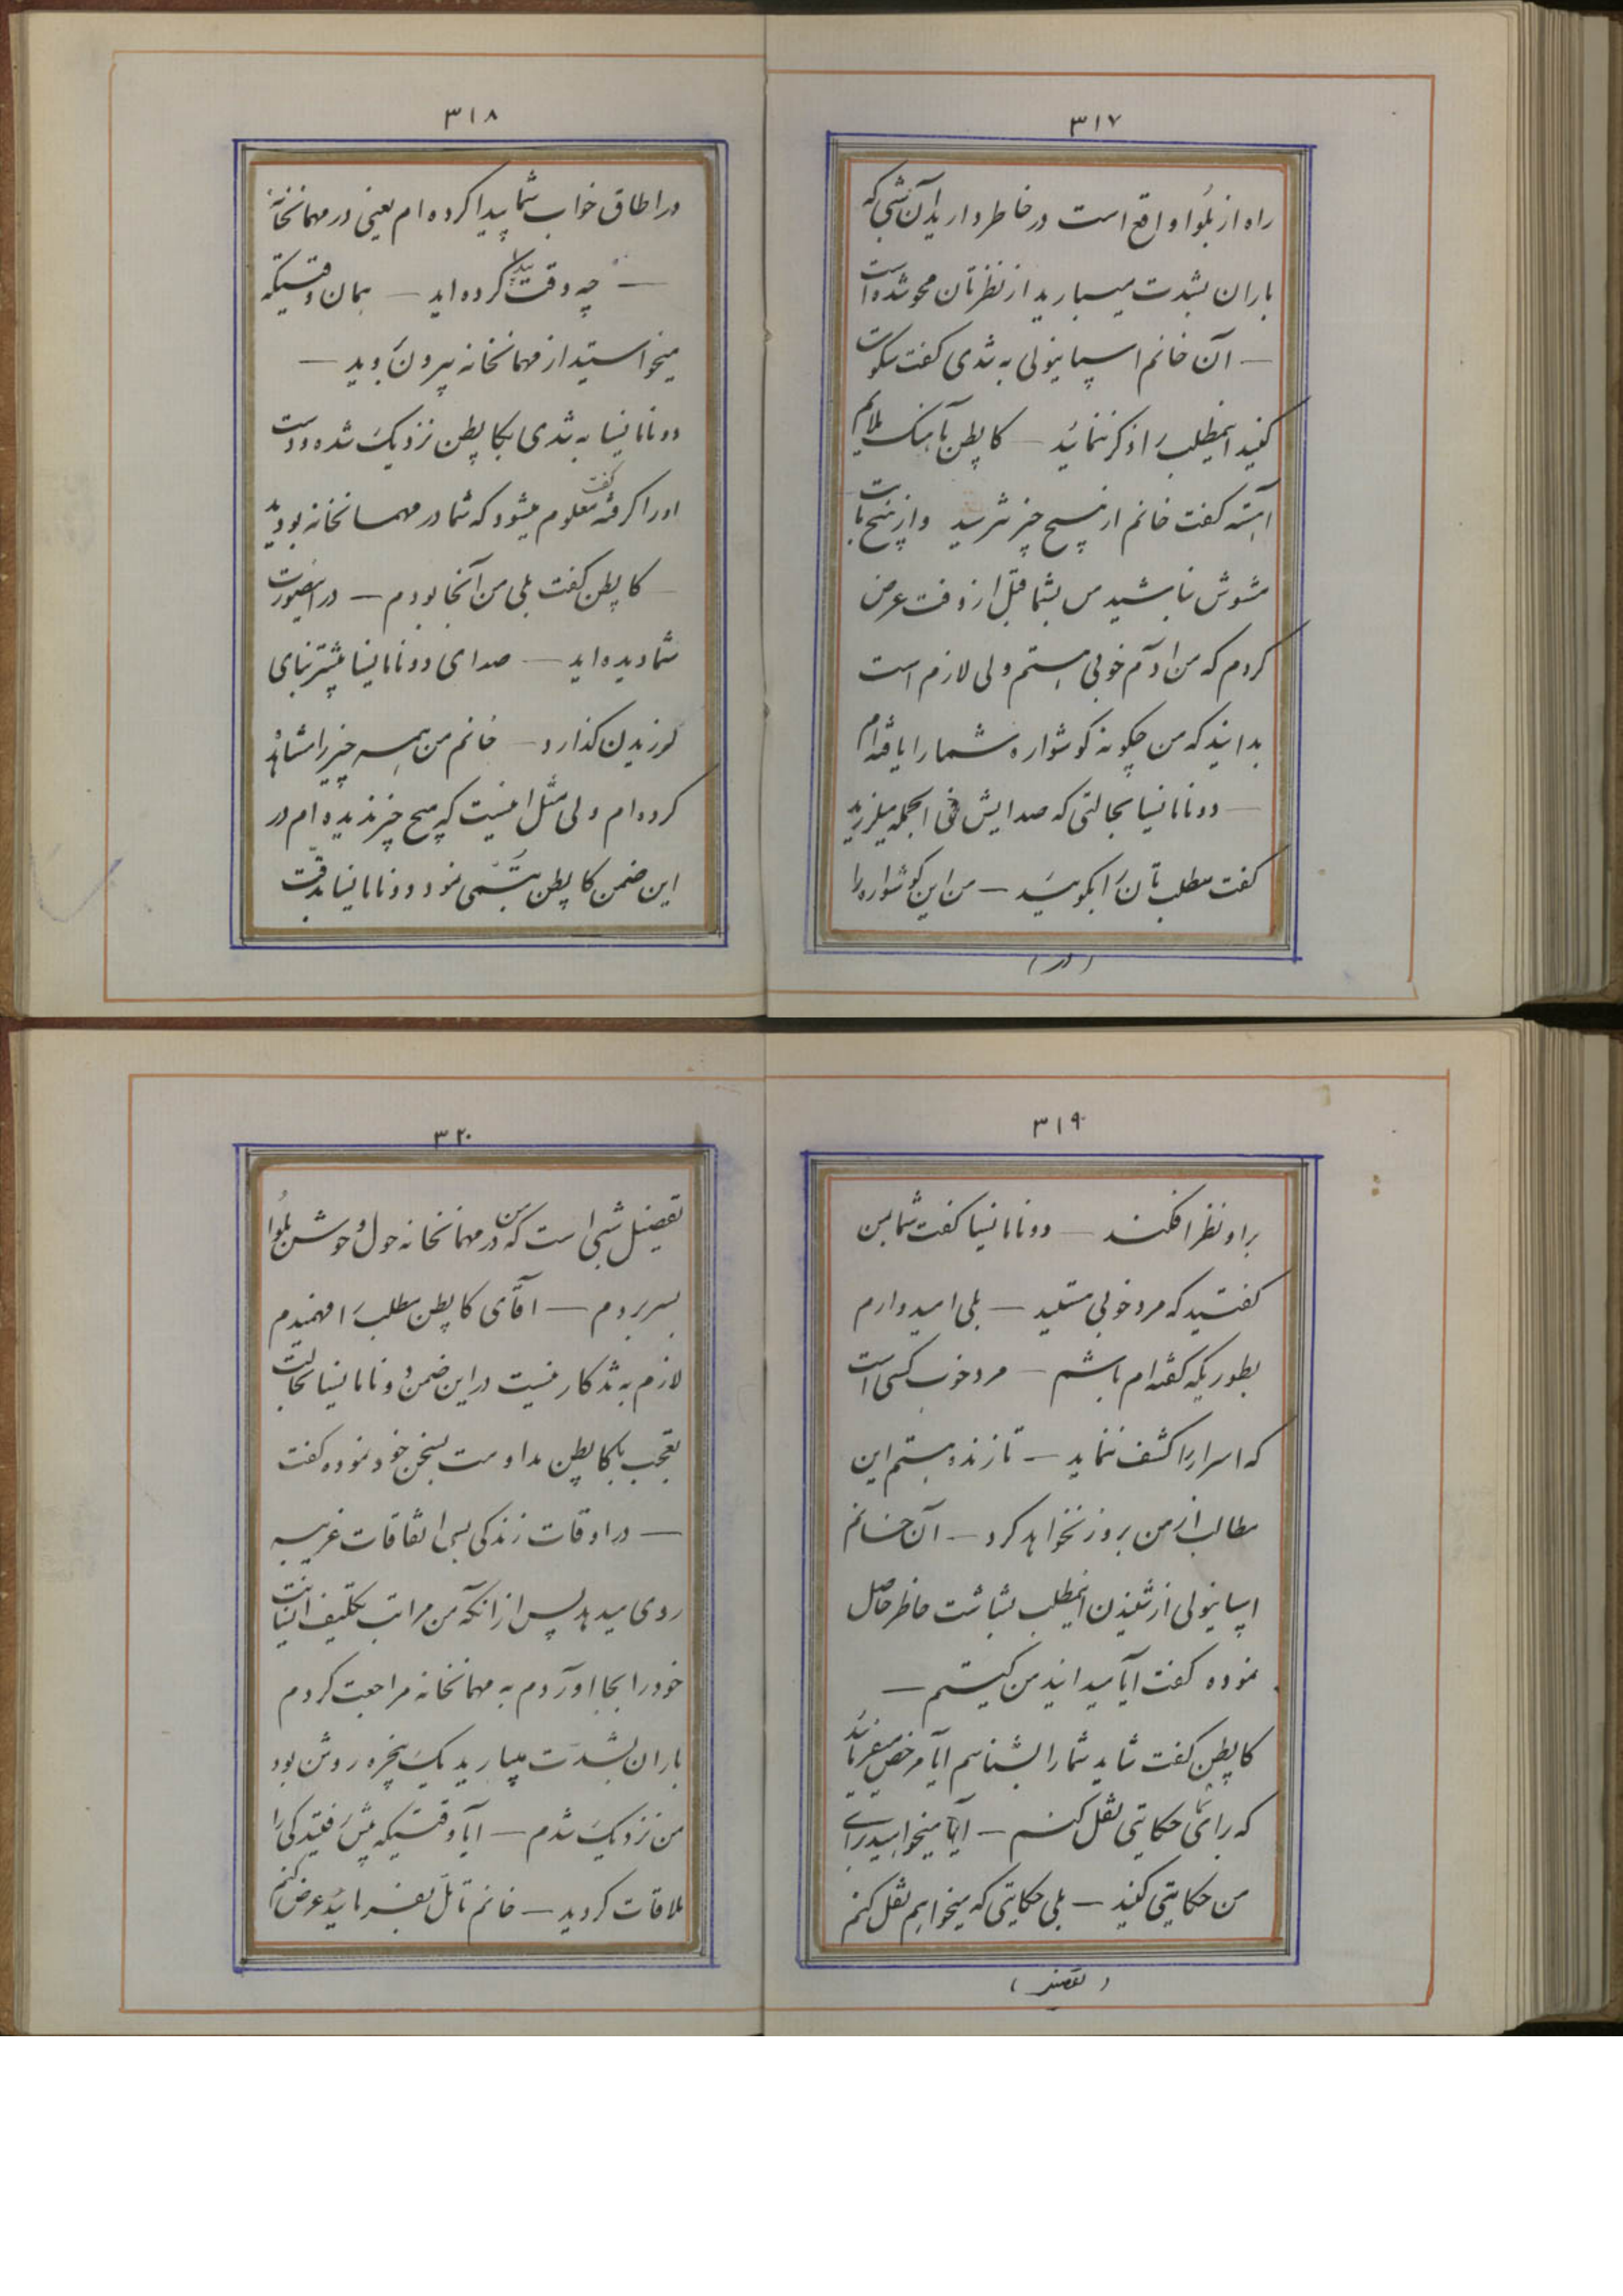 ۳۱۷
راه از بلوا واقع است در خاطر دارید آن شبی که
باران بشدت میبارید از نظرتان محو شده است
— آن خانم اسپانیولی به تندی گفت سکوت
کنید اینمطلب را ذکر ننمائید — کاپطن بآهنک ملایم
آهسته گفت خانم از هیچ چیز نترسید و از هیچ بابت
مشوش نباشید من بشما قبل از وقت عرض
کردم که من آدم خوبی هستم ولی لازم است
بدانید که من چکونه کوشواره شما را یافته‌ام
— دونامانسیا بحالتی که صدایش فی الجمله میلرزید
کفت مطلب تان را بکوئید — من این کوشواره را
(در)
۳۱۸
در اطاق خواب شما پیدا کرده ام یعنی در مهمانخانه
— چه وقت پیدا کرده اید — همان وقتیکه
میخواستید از مهمانخانه بیرون روید —
دونامانسیا به تندی بکاپطن نزدیک شده و دست
او را کرفته گفت معلوم میشود که شما در مهمانخانه بودید
— کاپطن کفت بلی من آنجا بودم — در اینصورت
شما دیده اید — صدای دونامانسیا بیشتر بنای
لرزیدن کذارد — خانم من همه چیز را مشاهده
کرده ام ولی مثل اینست که هیچ چیز ندیده ام در
این ضمن کاپطن تبسّمی نمود و دونامانسیا بدقّت
۳۱۹
براو نظر افکند — دونامانسیا کفت شما بمن
کفتید که مرد خوبی هستید — بلی امیدوارم
بطوریکه کفته ام باشم — مرد خوب کسی است
که اسرار را کشف ننماید — تا زنده هستم این
مطالب از من بروز نخواهد کرد — آن خانم
اسپانیولی از شنیدن اینمطلب بشاشت خاطر حاصل
نموده کفت آیا میدانید من کیستم —
کاپطن کفت شاید شما را بشناسم آیا مرخص میفرمائید
که برای حکایتی نقل کنم — آیا میخواهید برای
من حکایتی کنید — بلی حکایتی که میخواهم نقل کنم
(تفصیل)
۳۲۰
تفصیل شبی است که من در مهمانخانه حول و حوش بلوا
بسر بردم — آقای کاپطن مطلب را فهمیدم
لازم به تذکار نیست در این ضمن دونامانسیا بحالت
تعجب بکاپطن مداومت بسخن خود نموده کفت
— در اوقات زندکی بسی اتفاقات غریبه
روی میدهد پس از آنکه من مراتب تکلیف انسانیت
خود را بجا آوردم به مهمانخانه مراجعت کردم
باران بشدّت میبارید یک پنجره روشن بود
من نزدیک شدم — آیا وقتیکه پیش رفتید کی را
ملاقات کردید — خانم تأمّل بفرمائید عرض کنم